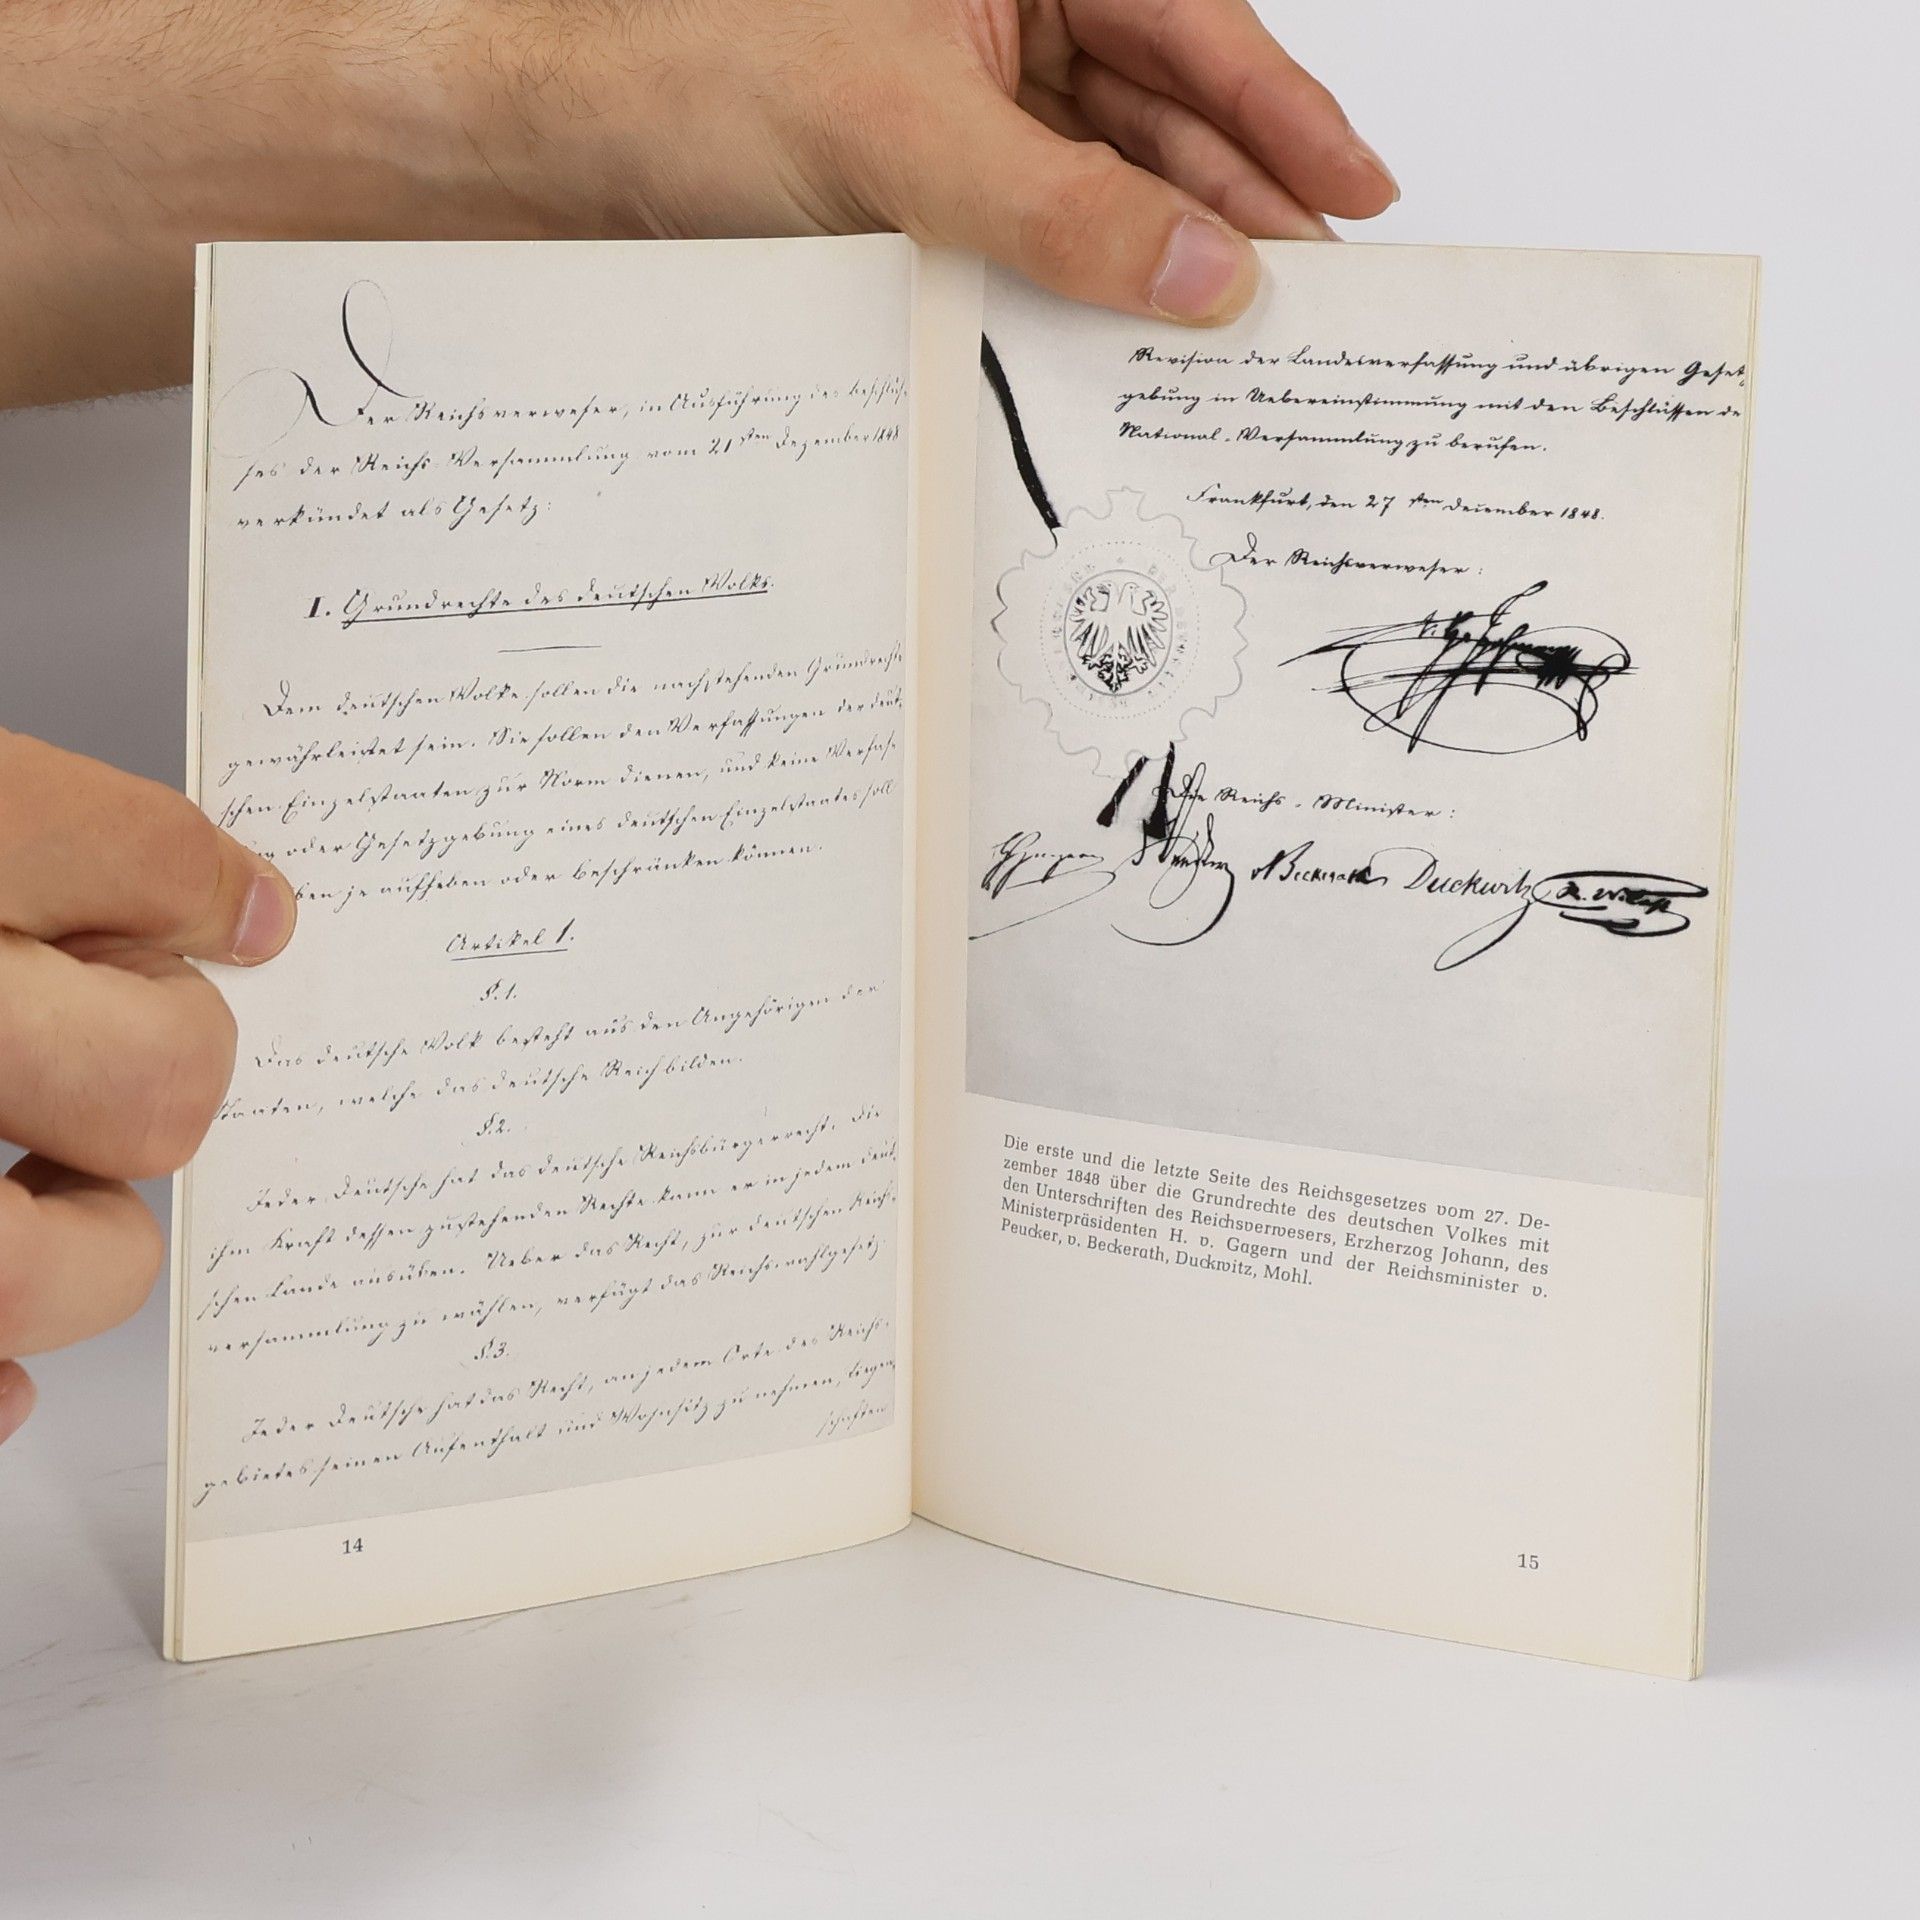 Der Reichsverweser, in Ausführung des Beschlus-
ses der Reichs-Versammlung vom 21sten Dezember 1848
verkündet als Gesetz:
I. Grundrechte des deutschen Volks.
Dem deutschen Volke sollen die nachstehenden Grundrechte
gewährleistet sein. Sie sollen den Verfassungen der deut-
schen Einzelstaaten zur Norm dienen, und keine Verfas-
ung oder Gesetzgebung eines deutschen Einzelstaates soll
ben je aufheben oder beschränken können.
Artikel 1.
§.1.
Das deutsche Volk besteht aus den Angehörigen der
Staaten, welche das deutsche Reich bilden.
§.2.
Jeder Deutsche hat das deutsche Reichsbürgerrecht. Die
ihm Kraft dessen zustehenden Rechte kann er in jedem deut-
schen Lande ausüben. Ueber das Recht, zur deutschen Reichs-
versammlung zu wählen, verfügt das Reichswahlgesetz.
§.3.
Jeder Deutsche hat das Recht, an jedem Orte des Reichs-
gebietes seinen Aufenthalt und Wohnsitz zu nehmen, Liegen-
schaften
14
Revision der Landesverfassung und übrigen Gesetz-
gebung in Uebereinstimmung mit den Beschlüssen de
National-Versammlung zu berufen.
Frankfurt, den 27sten December 1848.
Der Reichsverweser:
Die Reichs-Minister:
v Beckerath Duckwitz
Die erste und die letzte Seite des Reichsgesetzes vom 27. De-
zember 1848 über die Grundrechte des deutschen Volkes mit
den Unterschriften des Reichsverwesers, Erzherzog Johann, des
Ministerpräsidenten H. v. Gagern und der Reichsminister v.
Peucker, v. Beckerath, Duckwitz, Mohl.
15